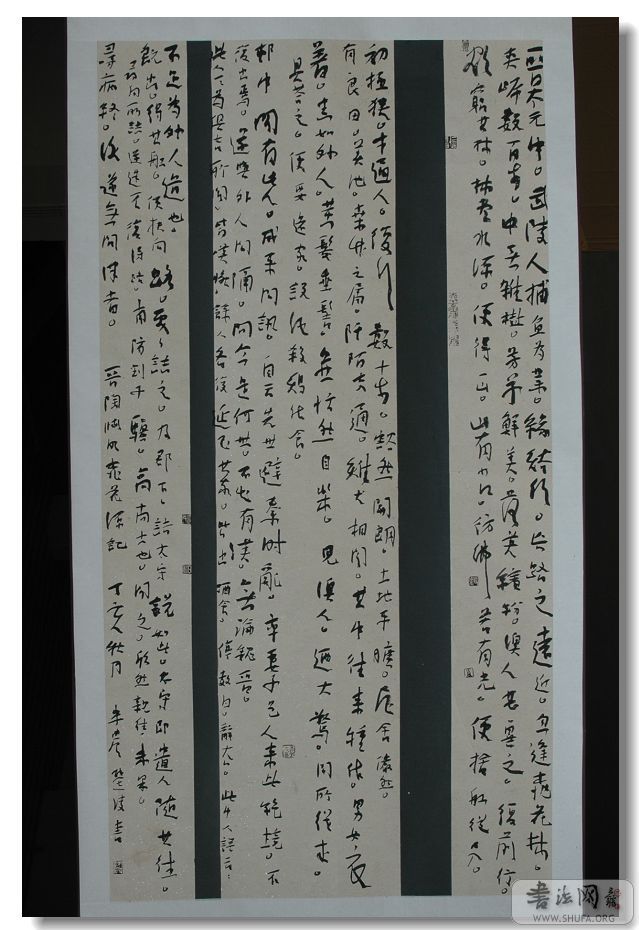 晋太元中。武陵人捕鱼为業。緣溪行。忘路之遠近。忽逢桃花林。
夾岸數百步。中無雜樹。芳草鮮美。落英繽紛。漁人甚異之。復前行。
欲窮其林。林盡水源。便得一山。山有小口。仿佛若有光。便捨船從口入。
初極狹。才通人。復行數十步。豁然開朗。土地平曠。屋舍儼然。
有良田。美池。桑竹之屬。阡陌交通。雞犬相聞。其中往來種作。男女衣
著。悉如外人。黃髮垂髫。並怡然自樂。見漁人。迺大驚。問所從來。
具答之。便要還家。設酒殺雞作食。
村中聞有此人。咸來問訊。自云先世避秦時亂。率妻子邑人來此絕境。不
復出焉。遂與外人間隔。問今是何世。不知有漢。無論魏晉。
此人一一為具言所聞。皆嘆惋。餘人各復延至其家。皆出酒食。停數日。辭去。此中人語云：
不足為外人道也。
既出。得其船。便扶向路。處處誌之。及郡下。詣太守說如此。太守即遣人隨其往。
尋向所誌。遂迷不復得路。南陽劉子驥。高尚士也。聞之。欣然規往。未果。
尋病終。後遂無問津者。晉陶淵明桃花源記 丁亥秋月 楚波書
書法网
WWW.SHUFA.ORG